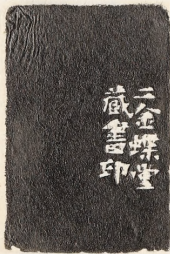 二金蝶堂
藏書印